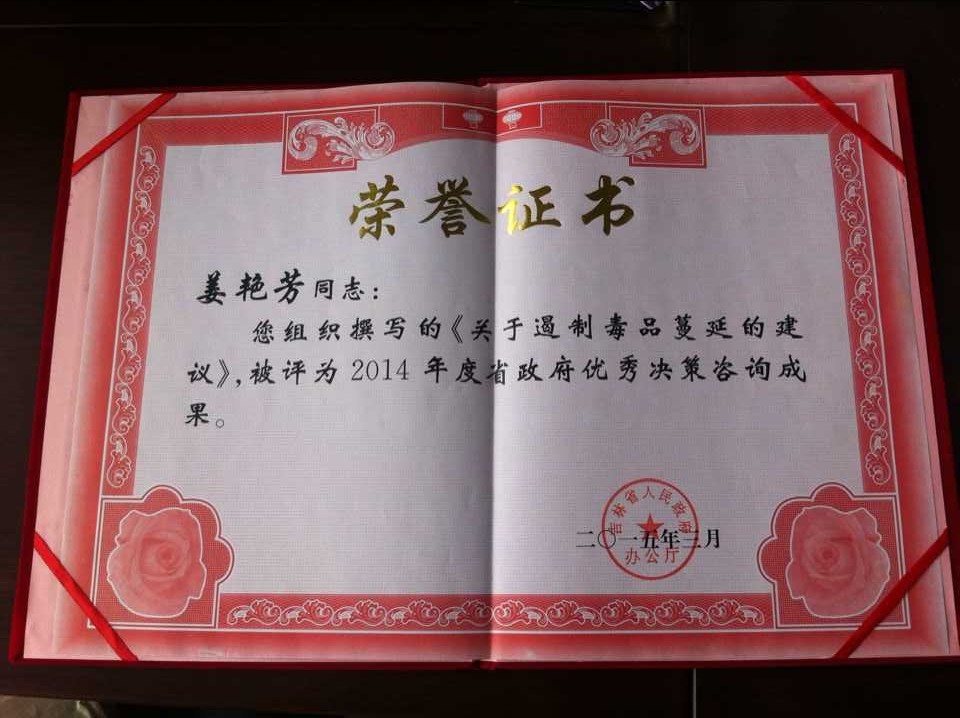 荣誉证书
姜艳芳同志：
您组织撰写的《关于遏制毒品蔓延的建
议》，被评为 2014 年度省政府优秀决策咨询成
果。
吉林省人民政府
办公厅
二〇一五年三月